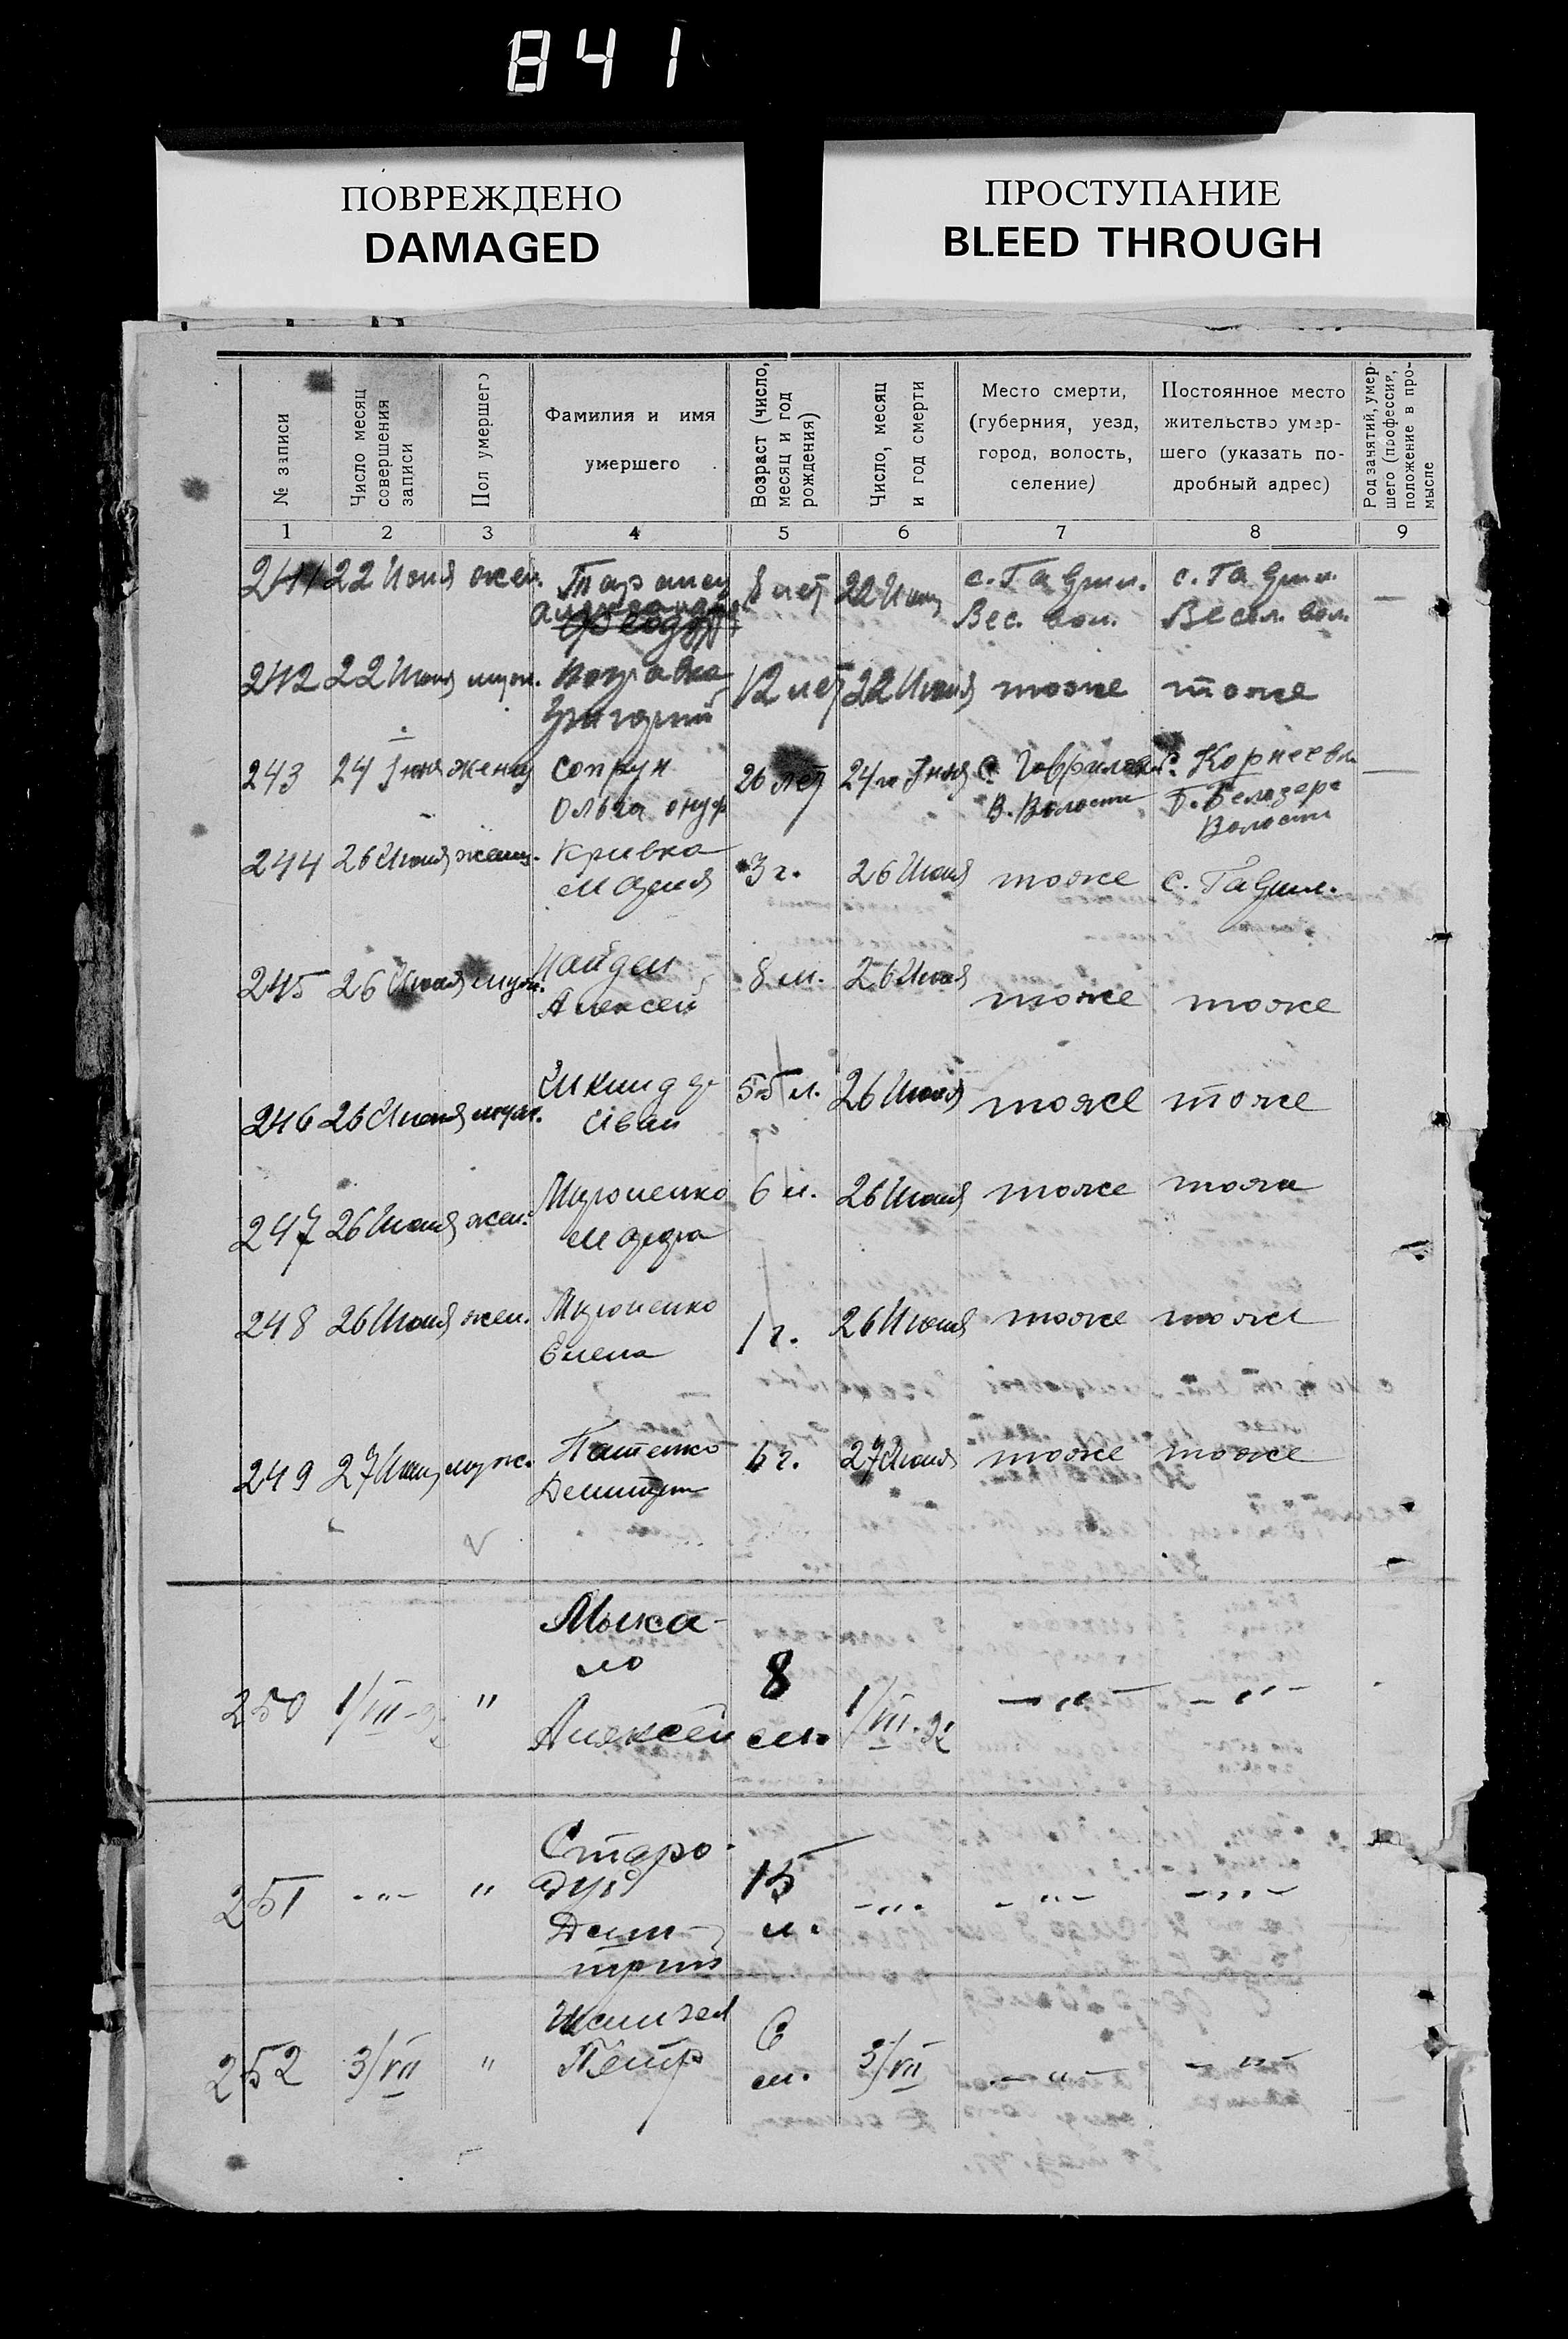 841
ПОВРЕЖДЕНО
DAMAGED
ПРОСТУПАНИЕ
BLEED THROUGH
№ записи
Число месяц
совершения
записи
Пол умершего
Фамилия и имя
умершего
Возраст (число,
месяц и год
рождения)
Число, месяц
и год смерти
Место смерти,
(губерния, уезд,
город, волость,
селение)
Постоянное место
жительство умер-
шего (указать по-
дробный адрес)
Род занятий, умер-
шего (профессия,
положение в про-
мысле
1 2 3 4 5 6 7 8 9
241 22 Июня жен. 8 лет 22 Июня с. Гаврил. с. Гаврил.
Вес. вол. Весел. вол.
242 22 Июня муж. 12 лет 22 Июня тоже тоже
Григорий
243 24 Июня женщ Сопрун 26 лет 24го Июня С. с. Корнеевк
Ольга Онуф В. Волости Б. Белозере
Волости
244 26 Июня женщ. Кривка 3 г. 26 Июня тоже с. Гаврил.
Мария
245 26 Июня муж. Найден 8 м. 26 Июня тоже тоже
Алексей
246 26 Июня муж. 55 л. 26 Июня тоже тоже
Іван
247 26 Июня жен. Мироненко 6 м. 26 Июня тоже тоже
248 26 Июня жен. Мироненко 1 г. 26 Июня тоже тоже
Елена
249 27 Июня муж. 27 Июня тоже тоже
Демитри
Мыка-
ло
250 1/VII-22 " 8 1/VII-22 - " - - " -
Алексей м.
Старо-
дуб
251 - " - " 15 - " - - " - - " -
Дем- л.
трий
252 3/VII " Петр 6 м. 3/VII - " - - " -